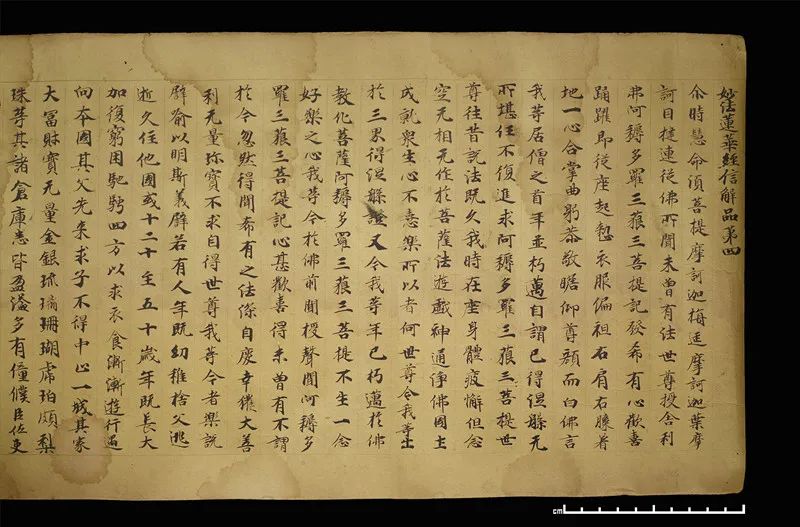 妙法蓮華經信解品第四
尒時慧命湏菩提摩訶迦栴延摩訶迦葉摩
訶目揵連從佛所聞未曾有法世尊授舍利
弗阿耨多羅三藐三菩提記發希有心歡喜
踊躍即從座起整衣服偏袒右肩右膝著
地一心合掌曲躬恭敬瞻仰尊顏而白佛言
我等居僧之首年並朽邁自謂已得涅槃无
所堪任不復進求阿耨多羅三藐三菩提世
尊往昔說法既久我時在座身體疲懈但念
空无相无作於菩薩法遊戲神通淨佛國土
成就衆生心不憙樂所以者何世尊令我等出
於三界得涅槃證又今我等年已朽邁於佛
教化菩薩阿耨多羅三藐三菩提不生一念
好樂之心我等今於佛前聞授聲聞阿耨多
羅三藐三菩提記心甚歡喜得未曾有不謂
於今忽然得聞希有之法深自慶幸獲大善
利无量珎寶不求自得世尊我等今者樂說
譬喻以明斯義譬若有人年既幼稚捨父逃
逝久住他國或十二十至五十歲年既長大
加復窮困馳騁四方以求衣食漸漸遊行遇
向本國其父先來求子不得中止一城其家
大冨財寶无量金銀琉璃珊瑚虎珀頗梨
珠等其諸倉庫悉皆盈溢多有僮僕臣佐吏